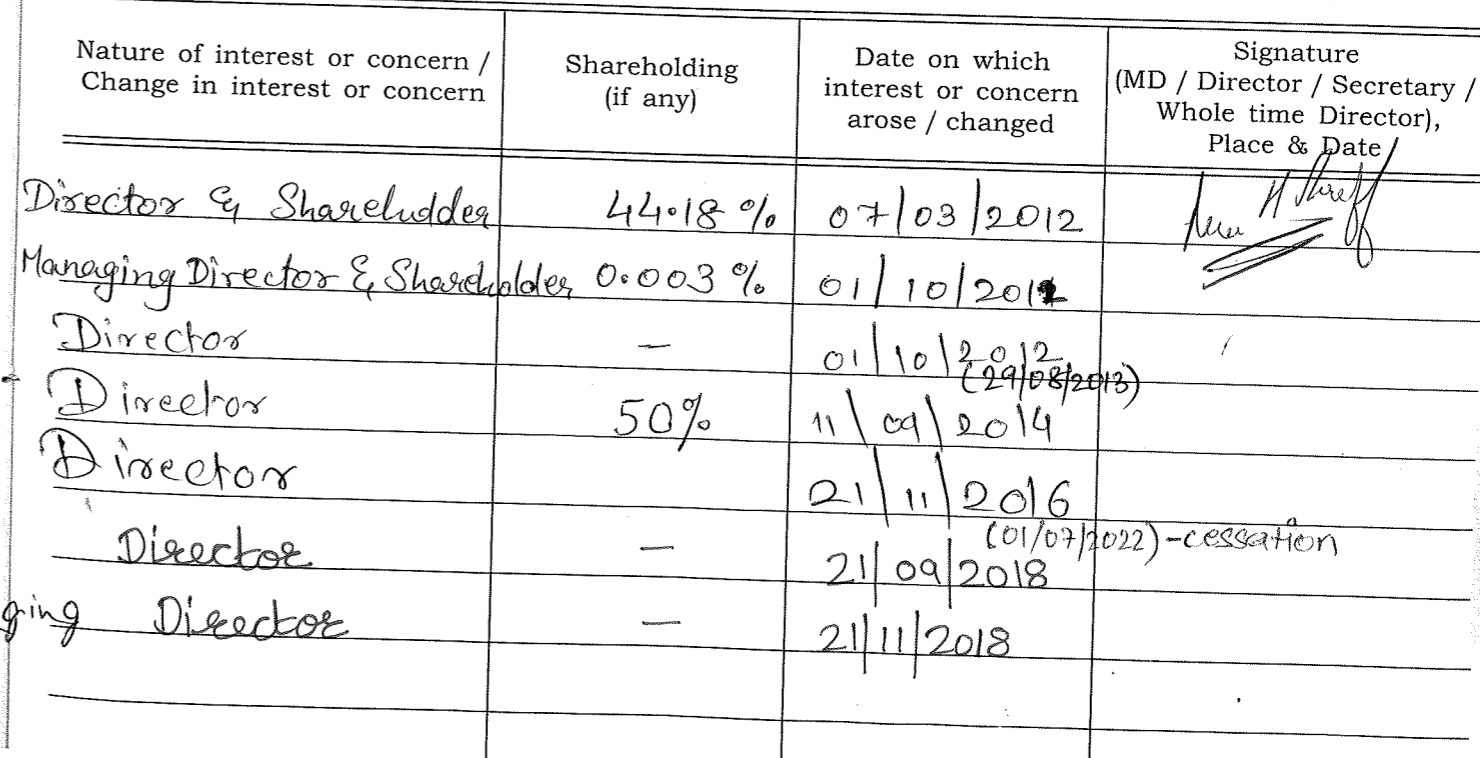 Nature of interest or concern / Change in interest or concern
Shareholding (if any)
Date on which interest or concern arose / changed
Signature (MD / Director / Secretary / Whole time Director), Place & Date
Director & Shareholder 44.18 % 07/03/2012
Managing Director & Shareholder 0.003 % 01/10/201
Director – 01/10/2012
(29/08/2013)
Director 50% 11/09/2014
Director 21/11/2016
(01/07/2022)-cessation
Director – 21/09/2018
ging Director – 21/11/2018